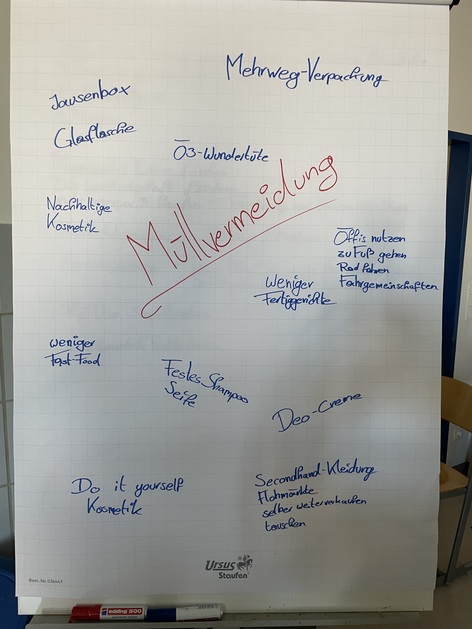 Mehrweg-Verpackung
Jausenbox
Glasflasche
Ö3-Wundertüte
Müllvermeidung
Nachhaltige
Kosmetik
Öffis nutzen
zu Fuß gehen
Rad fahren
Fahrgemeinschaften
Weniger
Fertiggerichte
weniger
Fast-Food
Festes Shampoo
Seife
Deo-Creme
Do it yourself
Kosmetik
Secondhand-Kleidung
Flohmärkte
selber weiterverkaufen
tauschen
Ursus
Staufen
edding 500